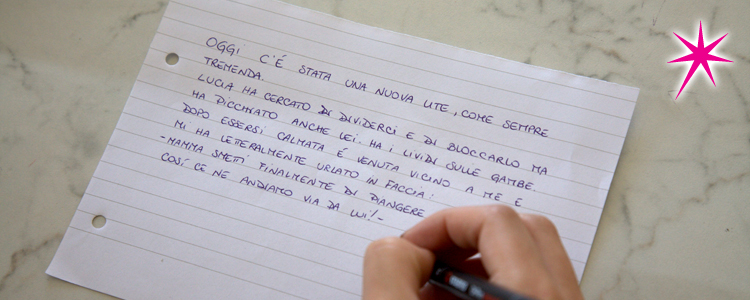 OGGI C'É STATA UNA NUOVA LITE, COME SEMPRE
TREMENDA.
LUCIA HA CERCATO DI DIVIDERCI E DI BLOCCARLO MA
HA PICCHIATO ANCHE LEI. HA I LIVIDI SULLE GAMBE.
DOPO ESSERSI CALMATA É VENUTA VICINO A ME E
MI HA LETTERALMENTE URLATO IN FACCIA:
-MAMMA SMETTI FINALMENTE DI PIANGERE
COSÍ CE NE ANDIAMO VIA DA LUI!-